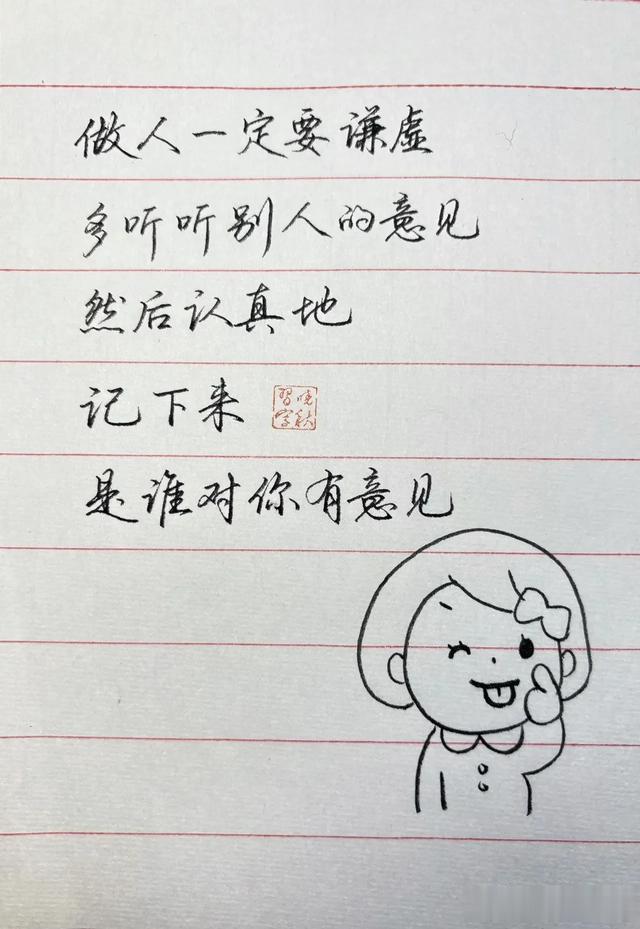 做人一定要谦虚
多听听别人的意见
然后认真地
记下来
晓秋習字
是谁对你有意见